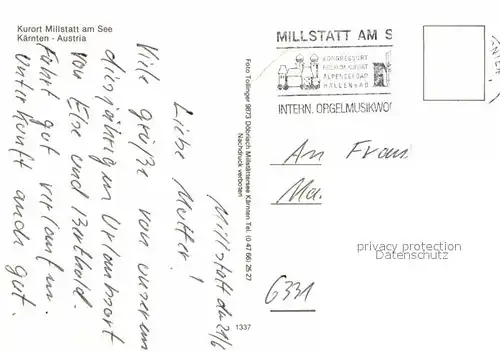 Kurort Millstatt am See
Kärnten - Austria
Millstatt, den 21/6
Liebe Mutter!
Viele Grüße von unserem
diesjährigen Urlaubsort
von Else und Berthold.
Fahrt gut verlaufen.
Unterkunft auch gut.
Foto Tollinger 9873 Döbriach Millstättersee Kärnten Tel. (0 47 66) 26 27
Nachdruck verboten
1337
MILLSTATT AM S
KONGRESSORT
ALPENSEEBAD
HALLENBAD
INTERN. ORGELMUSIKWO
An Frau
Ma.
privacy protection
DATENSCHUTZ
6331